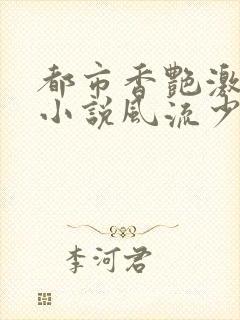 都市香艷激
小說風流少
李河君